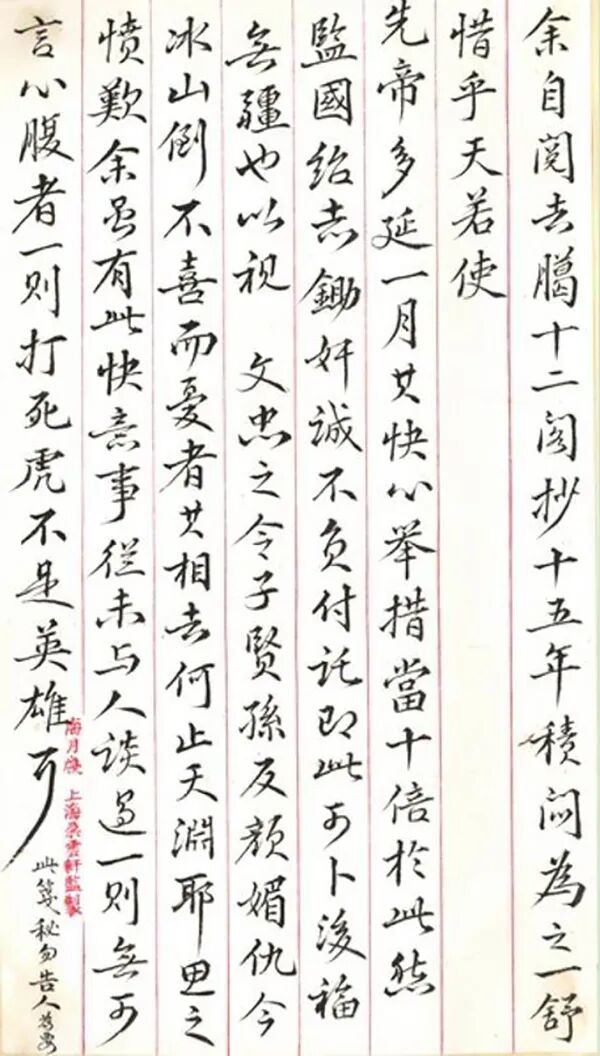 余自阅去臈十二阁抄十五年積闷為之一舒
惜乎天若使
先帝多延一月其快心举措當十倍於此然
監國紹志鋤奸诚不负付託即此可卜後福
無疆也以視 文忠之令子賢孫反颜媚仇今
冰山倒不喜而憂者其相去何止天淵耶思之
愤歎余虽有此快意事從未与人谈過一则無可
言心腹者一则打死虎不足英雄耳
此箋秘勿告人为要
海月牋 上海朵雲軒監製